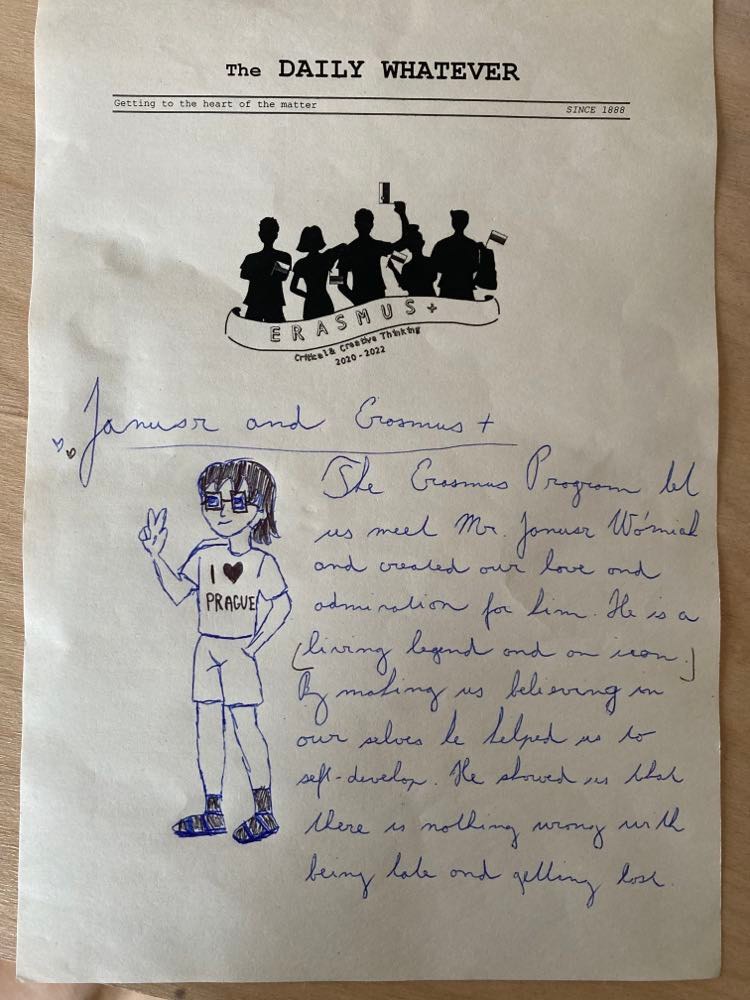 The DAILY WHATEVER
Getting to the heart of the matter
SINCE 1888
ERASMUS+
Critical & Creative Thinking
2020 - 2022
Janusz and Erasmus +
The Erasmus Program let
us meet Mr. Janusz Woźniak
and created our love and
admiration for him. He is a
[living legend and an icon.]
By making us believing in
our selves he helped us to
self-develop. He showed us that
there is nothing wrong with
being late and getting lost.
I ♥
PRAGUE